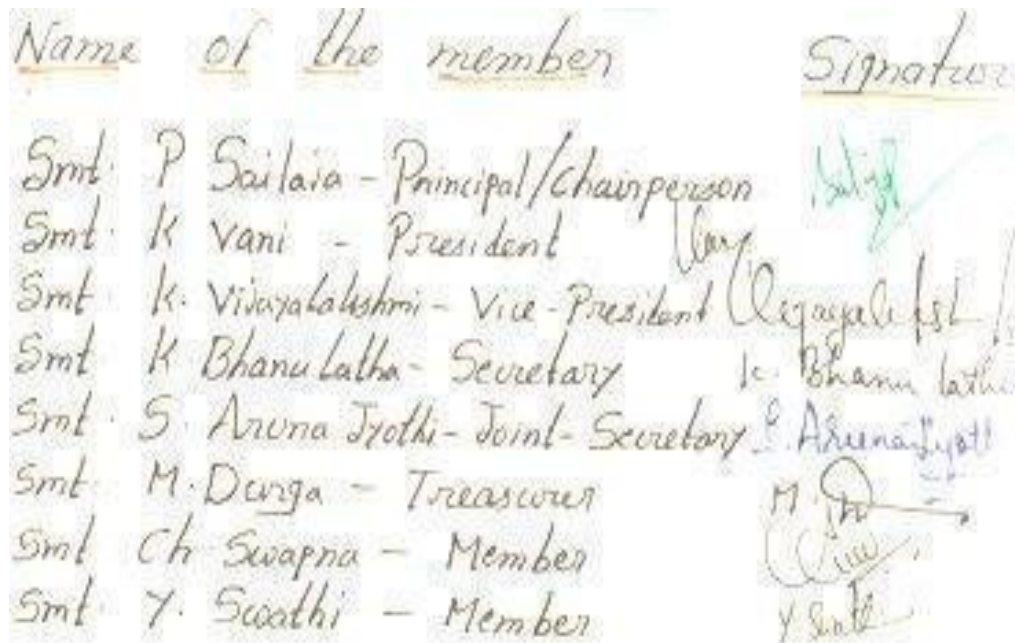 Name of the member Signature
Smt. P Sailaja - Principal/Chairperson
Smt. K Vani - President
Smt. K. Vijayalakshmi - Vice-President
Smt. K Bhanu latha - Secretary K. Bhanu latha
Smt. S. Aruna Jyothi - Joint-Secretary S. Aruna Jyothi
Smt. M. Durga - Treasurer
Smt. Ch Swapna - Member
Smt. Y. Swathi - Member